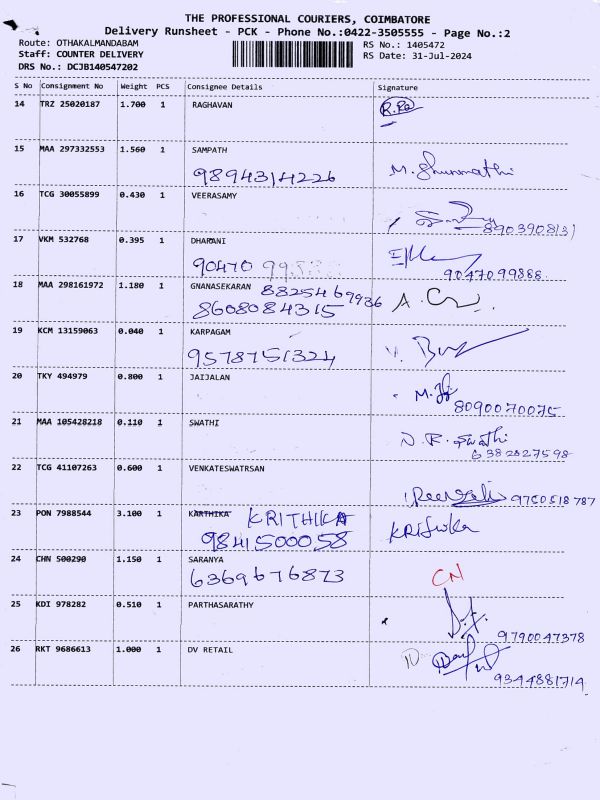 THE PROFESSIONAL COURIERS, COIMBATORE
Delivery Runsheet - PCK - Phone No.:0422-3505555 - Page No.:2
Route: OTHAKALMANDABAM
RS No.: 1405472
Staff: COUNTER DELIVERY
RS Date: 31-Jul-2024
DRS No.: DCJB140547202
S No Consignment No Weight PCS Consignee Details Signature
14 TRZ 25020187 1.700 1 RAGHAVAN
15 MAA 297332553 1.560 1 SAMPATH
9894314226
16 TCG 30055899 0.430 1 VEERASAMY
8903908131
17 VKM 532768 0.395 1 DHARANI
90470 99
9047099888
18 MAA 298161972 1.180 1 GNANASEKARAN 8825469936
8608084315
19 KCM 13159063 0.040 1 KARPAGAM
9578751324
20 TKY 494979 0.800 1 JAIJALAN
8090070075
21 MAA 105428218 0.110 1 SWATHI
N.R. Swathi
6382827598
22 TCG 41107263 0.600 1 VENKATESWATRSAN
9750518787
23 PON 7988544 3.100 1 KARTHIKA KRITHIKA
9841500058
24 CHN 500290 1.150 1 SARANYA
6369676873 CN
25 KDI 978282 0.510 1 PARTHASARATHY
9790047378
26 RKT 9686613 1.000 1 DV RETAIL
9344881714